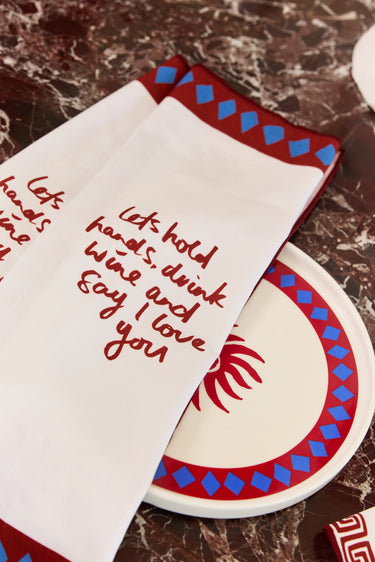 Lets
hands
wine
say
Lets hold
hands, drink
wine and
say I love
you